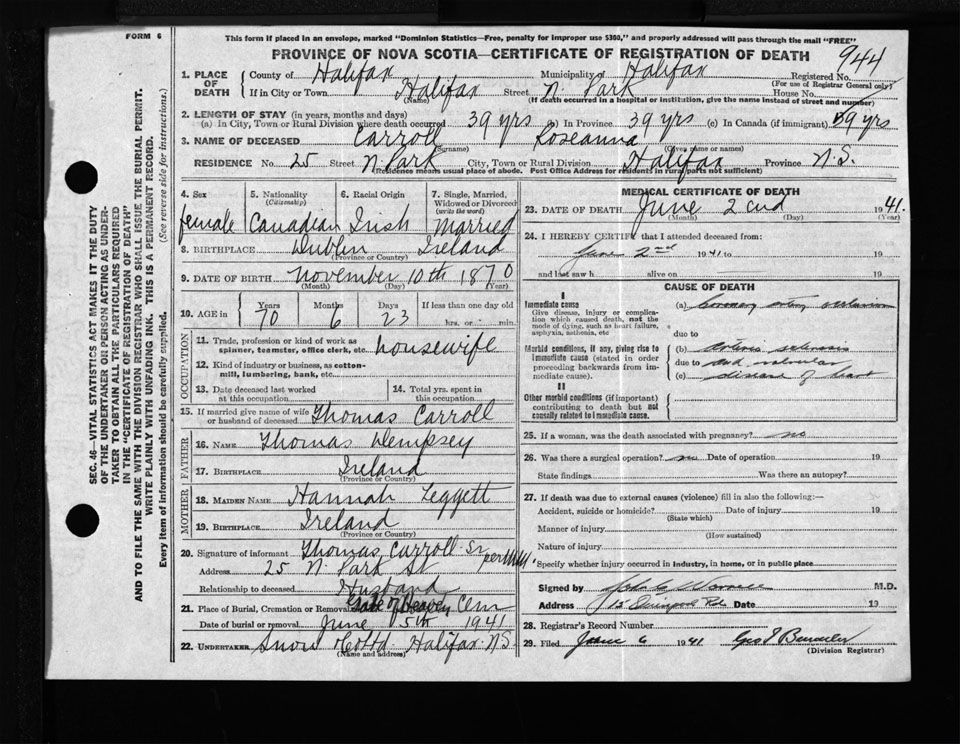 FORM 6
This form if placed in an envelope, marked "Dominion Statistics—Free, penalty for improper use $300," and properly addressed will pass through the mail "FREE"
PROVINCE OF NOVA SCOTIA—CERTIFICATE OF REGISTRATION OF DEATH
944
1. PLACE OF DEATH
County of Halifax Municipality of Halifax Registered No.
(For use of Registrar General only)
If in City or Town Halifax Street N. Park House No.
(Name) (If death occurred in a hospital or institution, give the name instead of street and number)
2. LENGTH OF STAY (in years, months and days)
(a) In City, Town or Rural Division where death occurred 39 yrs (b) In Province 39 yrs (c) In Canada (if immigrant) 39 yrs
3. NAME OF DECEASED Carroll Roseanna
(Surname) (Given name or names)
RESIDENCE No. 25 Street N. Park City, Town or Rural Division Halifax Province N.S.
(Residence means usual place of abode. Post Office Address for residents in rural parts not sufficient)
4. Sex female
5. Nationality (Citizenship) Canadian
6. Racial Origin Irish
7. Single, Married, Widowed or Divorced (write the word) Married
8. BIRTHPLACE Dublin Ireland
(Province or Country)
9. DATE OF BIRTH November 10th 1870
(Month) (Day) (Year)
10. AGE in Years 70 Months 6 Days 23 If less than one day old
hrs. or min.
OCCUPATION
11. Trade, profession or kind of work as spinner, teamster, office clerk, etc. housewife
12. Kind of industry or business, as cotton-mill, lumbering, bank, etc.
13. Date deceased last worked at this occupation
14. Total yrs. spent in this occupation
15. If married give name of wife or husband of deceased Thomas Carroll
FATHER
16. NAME Thomas Dempsey
17. BIRTHPLACE Ireland
(Province or Country)
MOTHER
18. MAIDEN NAME Hannah Leggett
19. BIRTHPLACE Ireland
(Province or Country)
20. Signature of informant Thomas Carroll Sr
Address 25 N. Park St
Relationship to deceased Husband
21. Place of Burial, Cremation or Removal Gate of Heaven Cem
Date of burial or removal June 5th 1941
22. UNDERTAKER Snow Co Ltd Halifax N.S.
(Name and address)
MEDICAL CERTIFICATE OF DEATH
23. DATE OF DEATH June 2cnd 1941.
(Month) (Day) (Year)
24. I HEREBY CERTIFY that I attended deceased from:
June 2nd 1941 to 19
and last saw h alive on 19
CAUSE OF DEATH
I
Immediate cause
Give disease, injury or complication which caused death, not the mode of dying, such as heart failure, asphyxia, asthenia, etc
(a) Coronary artery
due to
Morbid conditions, if any, giving rise to immediate cause (stated in order proceeding backwards from immediate cause).
(b) Arterio sclerosis
due to and valvular
(c) disease of heart
II
Other morbid conditions (if important) contributing to death but not causally related to immediate cause.
25. If a woman, was the death associated with pregnancy? no
26. Was there a surgical operation? no Date of operation 19
State findings Was there an autopsy?
27. If death was due to external causes (violence) fill in also the following:—
Accident, suicide or homicide? Date of injury 19
(State which)
Manner of injury
(How sustained)
Nature of injury
Specify whether injury occurred in industry, in home, or in public place
Signed by M.D.
Address Date 19
28. Registrar's Record Number
29. Filed June 6 1941
(Division Registrar)
SEC. 46—VITAL STATISTICS ACT MAKES IT THE DUTY
OF THE UNDERTAKER OR PERSON ACTING AS UNDER-
TAKER TO OBTAIN ALL THE PARTICULARS REQUIRED
IN THE "CERTIFICATE OF REGISTRATION OF DEATH"
AND TO FILE THE SAME WITH THE DIVISION REGISTRAR WHO SHALL ISSUE THE BURIAL PERMIT.
WRITE PLAINLY WITH UNFADING INK. THIS IS A PERMANENT RECORD.
Every item of information should be carefully supplied. (See reverse side for instructions.)